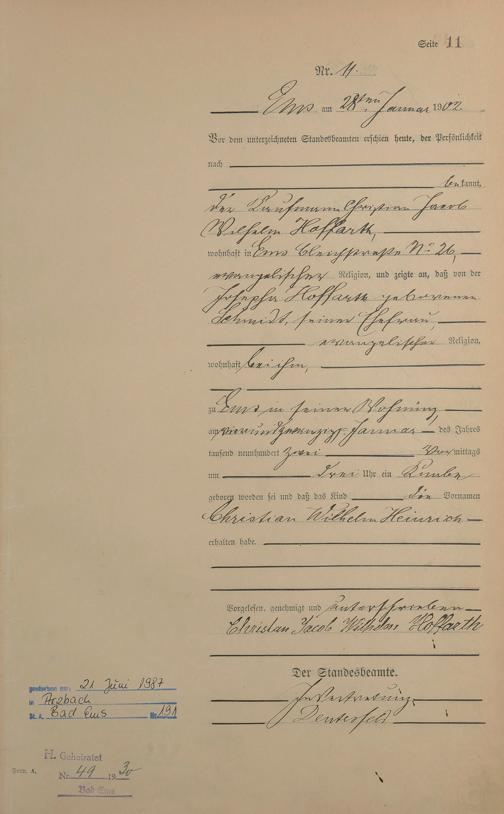 Seite 11
Nr. 11.
Ems am 28ten Januar 1902
Vor dem unterzeichneten Standesbeamten erschien heute, der Persönlichkeit
nach
bekannt,
der Kaufmann Christian Jacob
Wilhelm Hoffarth,
wohnhaft in Ems Bleichstraße No 26,
evangelischer Religion, und zeigte an, daß von der
Josepha Hoffarth geborenen
Schmidt, seiner Ehefrau,
evangelischer Religion,
wohnhaft bei ihm,
zu Ems in seiner Wohnung,
am vierundzwanzigsten Januar des Jahres
tausend neunhundert zwei Vormittags
um drei Uhr ein Knabe
geboren worden sei und daß das Kind die Vornamen
Christian Wilhelm Heinrich
erhalten habe.
Vorgelesen, genehmigt und unterschrieben
Christian Jacob Wilhelm Hoffarth
Der Standesbeamte.
In Vertretung.
gestorben am: 21 Juni 1987
in Arzbach
St. A. Bad Ems Nr. 191
H. Geheiratet
Nr. 49 1930
Bad Ems
Form. A.